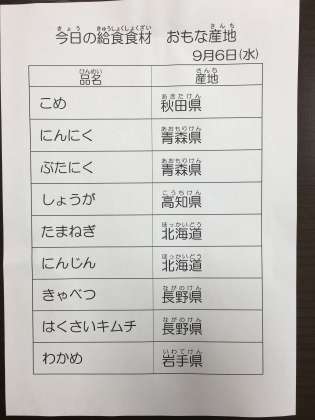 今日の給食食材　おもな産地
9月6日(水)
品名　産地
こめ　秋田県
にんにく　青森県
ぶたにく　青森県
しょうが　高知県
たまねぎ　北海道
にんじん　北海道
きゃべつ　長野県
はくさいキムチ　長野県
わかめ　岩手県